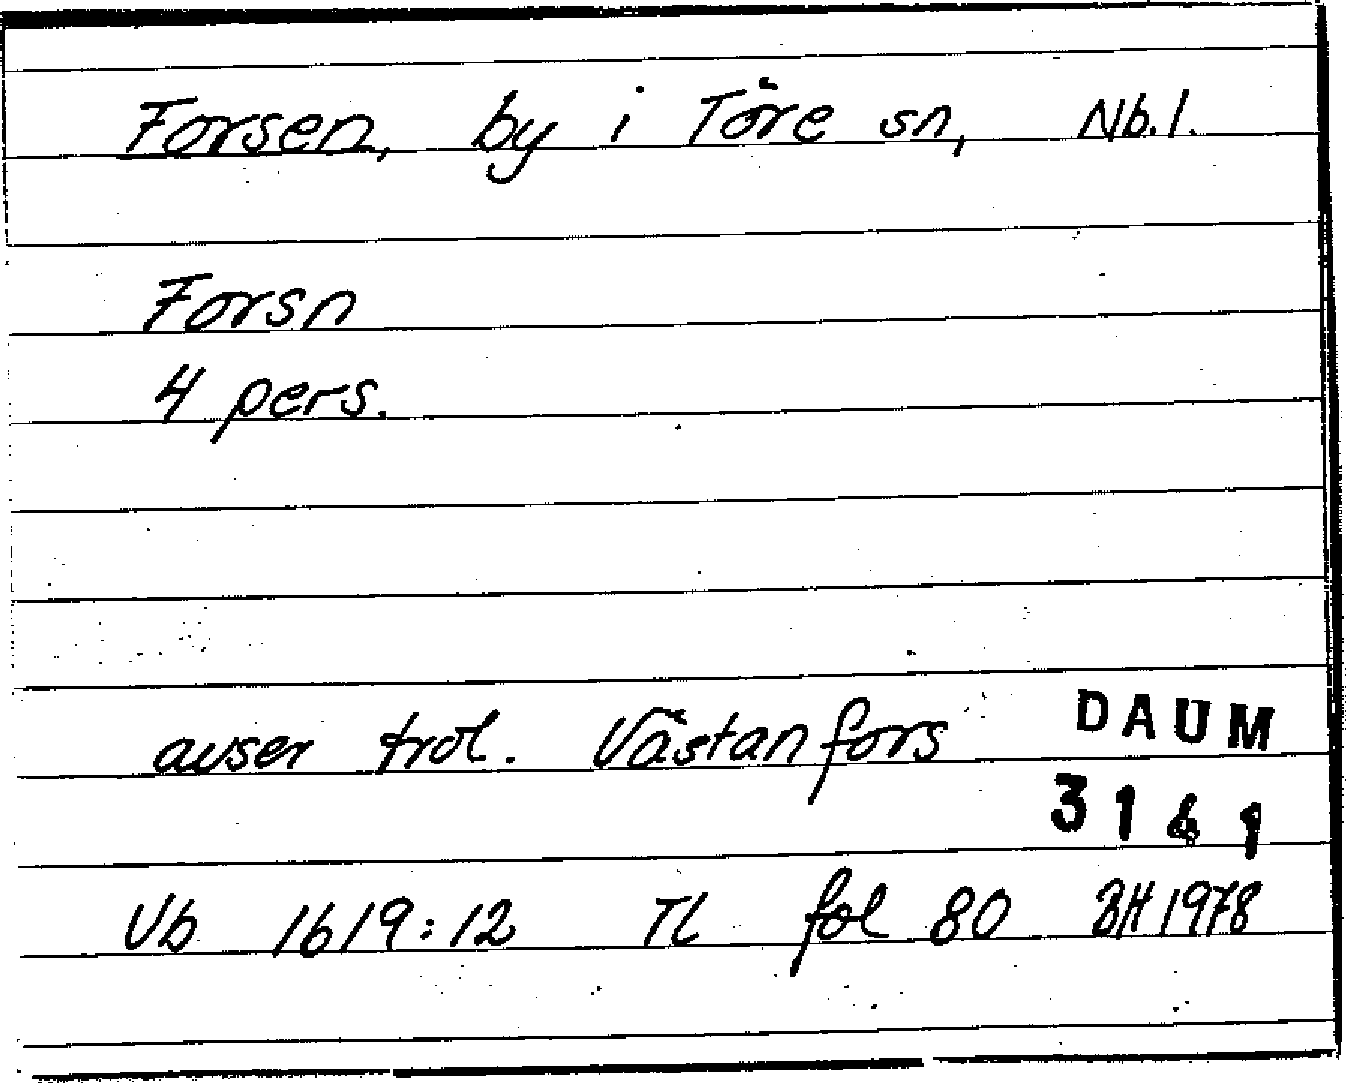 Forsen, by i Töre sn, Nb.l.
Forsn
4 pers.
avser trol. Västanfors
DAUM
3141
Vb 1619:12 TL fol 80 BH 1978